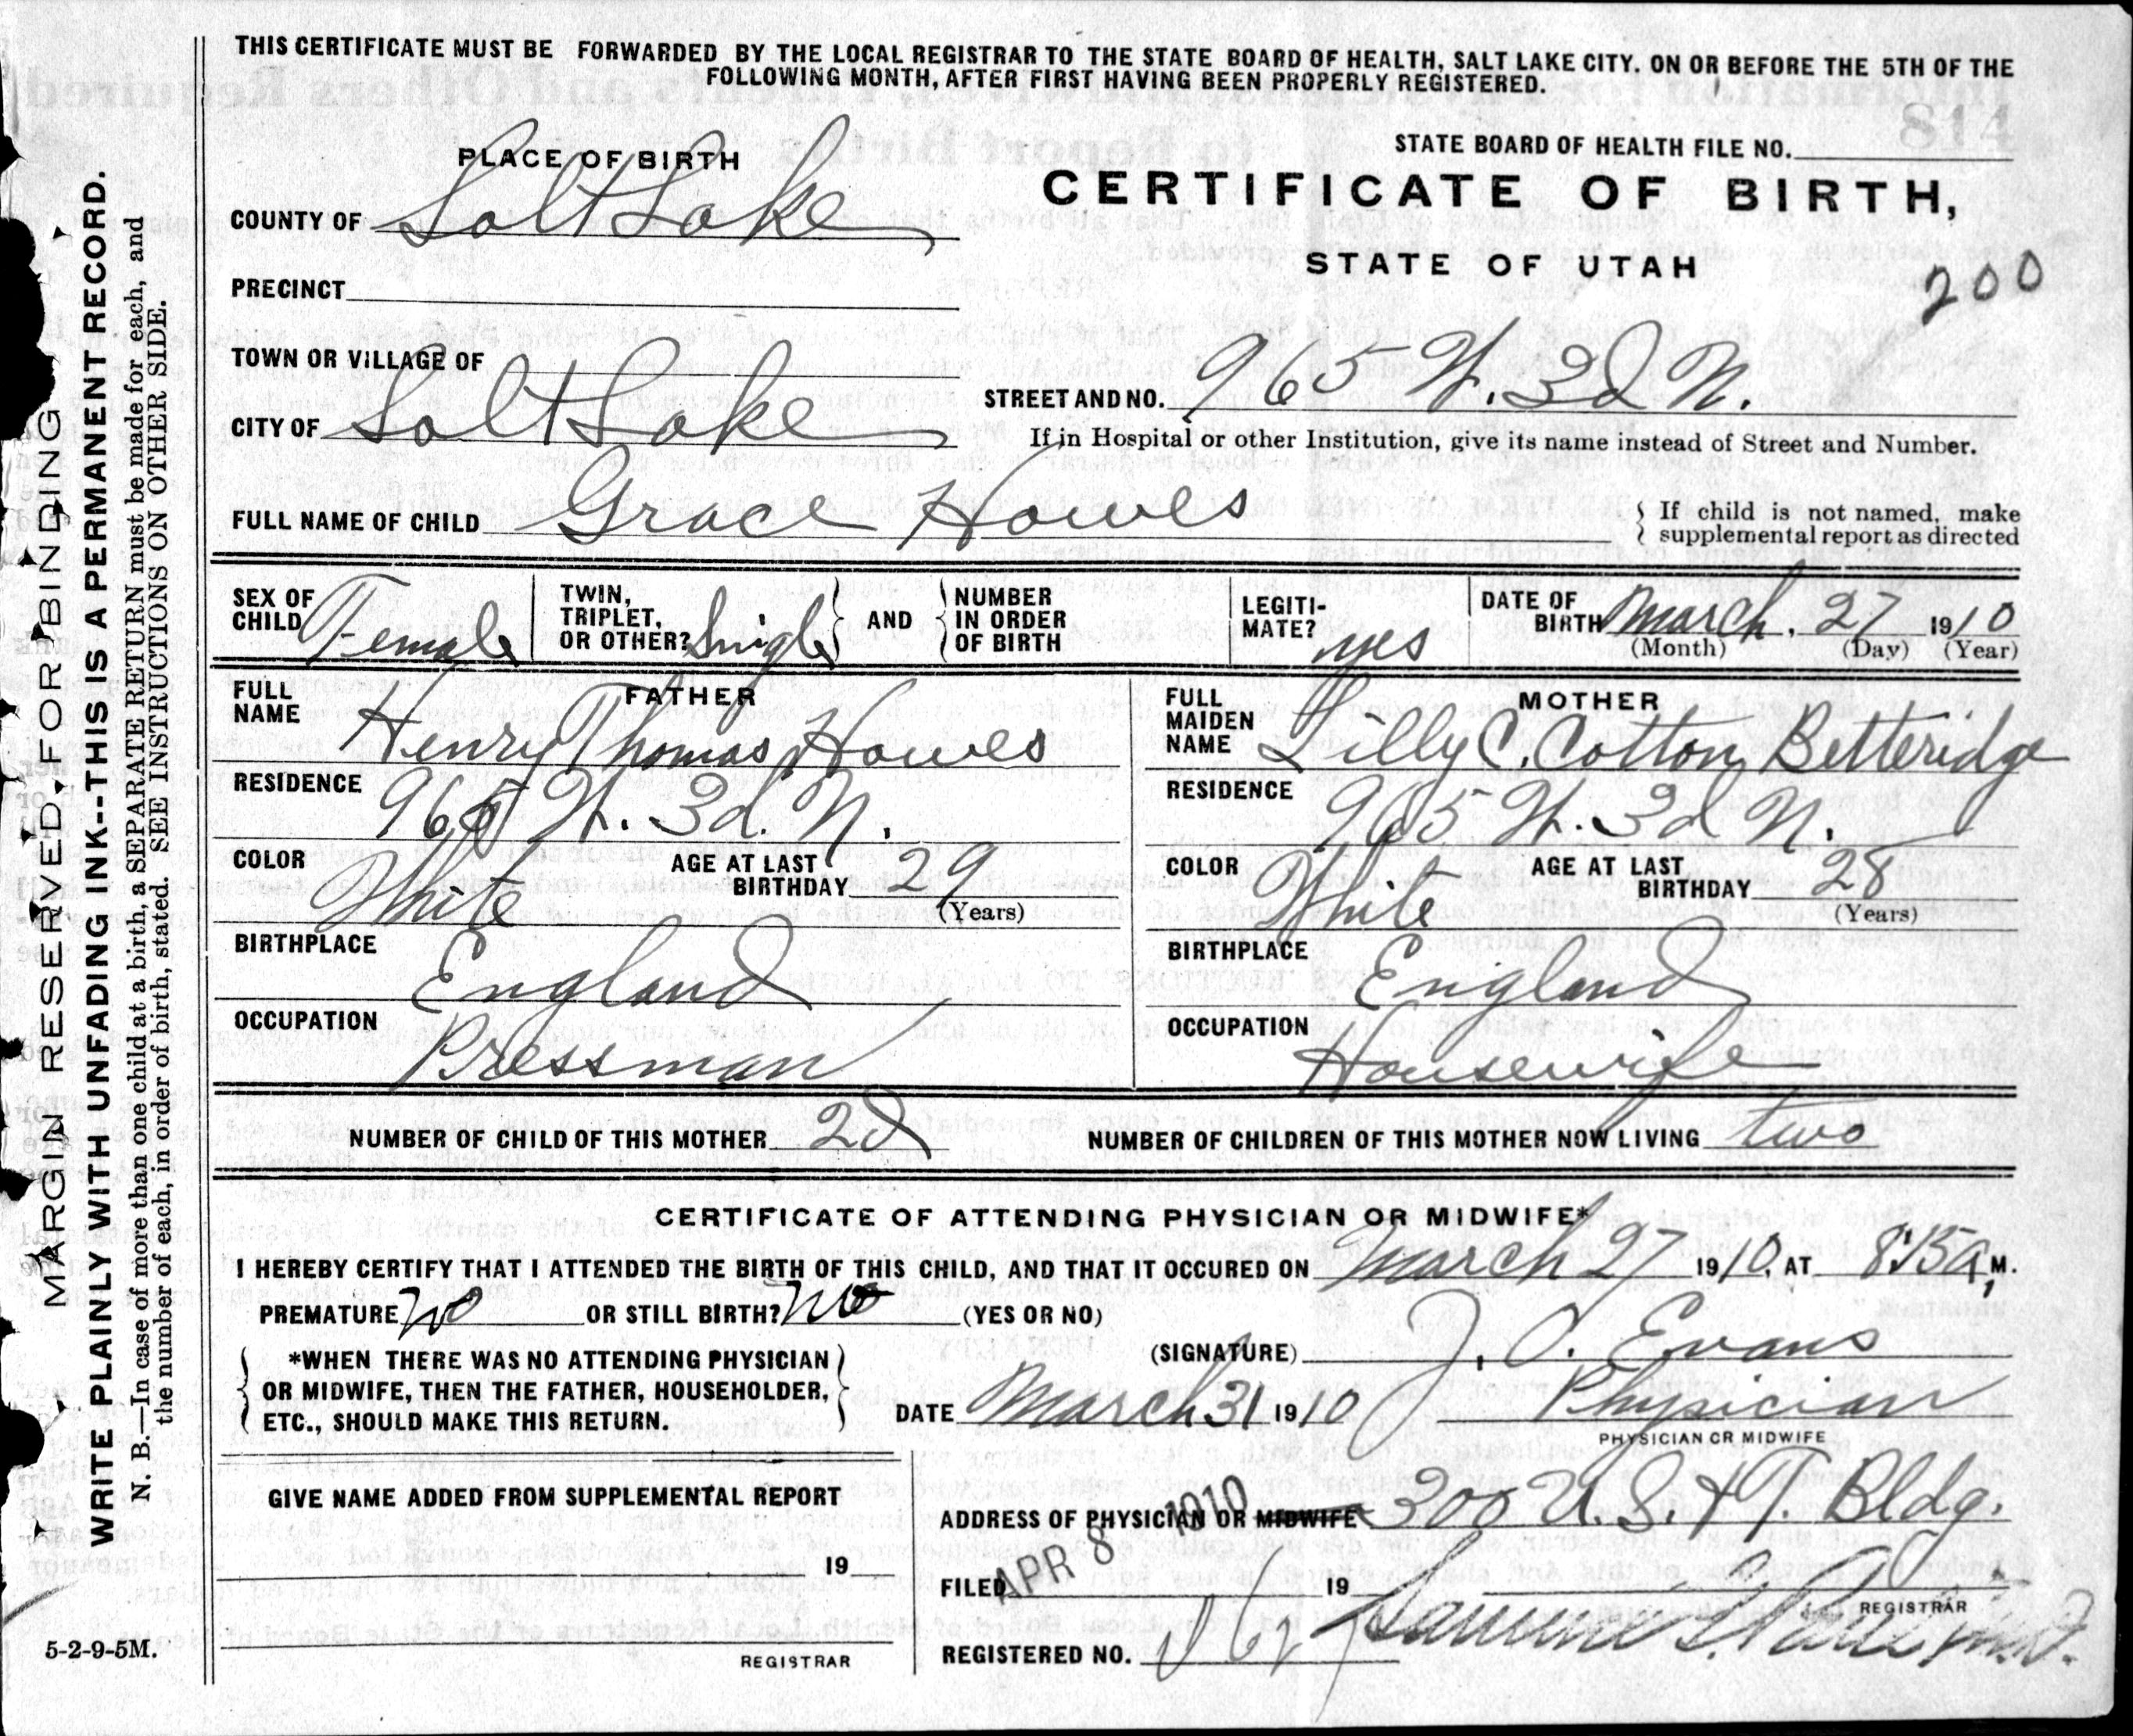 THIS CERTIFICATE MUST BE FORWARDED BY THE LOCAL REGISTRAR TO THE STATE BOARD OF HEALTH, SALT LAKE CITY. ON OR BEFORE THE 5TH OF THE
FOLLOWING MONTH, AFTER FIRST HAVING BEEN PROPERLY REGISTERED.
814
PLACE OF BIRTH
STATE BOARD OF HEALTH FILE NO.
COUNTY OF Salt Lake
CERTIFICATE OF BIRTH,
STATE OF UTAH
200
PRECINCT
TOWN OR VILLAGE OF
STREET AND NO. 965 W. 3d N.
CITY OF Salt Lake
If in Hospital or other Institution, give its name instead of Street and Number.
FULL NAME OF CHILD Grace Howes
If child is not named, make
supplemental report as directed
SEX OF CHILD Female
TWIN, TRIPLET, OR OTHER? Single
AND
NUMBER IN ORDER OF BIRTH
LEGITI-MATE? yes
DATE OF BIRTH March, 27 1910
(Month) (Day) (Year)
FATHER
FULL NAME Henry Thomas Howes
RESIDENCE 965 W. 3d. N.
COLOR White
AGE AT LAST BIRTHDAY 29
(Years)
BIRTHPLACE England
OCCUPATION Pressman
MOTHER
FULL MAIDEN NAME Lilly C. Cotton Betteridge
RESIDENCE 965 W. 3d N.
COLOR White
AGE AT LAST BIRTHDAY 28
(Years)
BIRTHPLACE England
OCCUPATION Housewife
NUMBER OF CHILD OF THIS MOTHER 2d
NUMBER OF CHILDREN OF THIS MOTHER NOW LIVING two
CERTIFICATE OF ATTENDING PHYSICIAN OR MIDWIFE*
I HEREBY CERTIFY THAT I ATTENDED THE BIRTH OF THIS CHILD, AND THAT IT OCCURED ON March 27 1910, AT 8:15 a, M.
PREMATURE No OR STILL BIRTH? No (YES OR NO)
*WHEN THERE WAS NO ATTENDING PHYSICIAN
OR MIDWIFE, THEN THE FATHER, HOUSEHOLDER,
ETC., SHOULD MAKE THIS RETURN.
(SIGNATURE) J. O. Evans
DATE March 31 1910
Physician
PHYSICIAN OR MIDWIFE
GIVE NAME ADDED FROM SUPPLEMENTAL REPORT
19
REGISTRAR
ADDRESS OF PHYSICIAN OR MIDWIFE 300 U. S. & T. Bldg.
FILED APR 8 1910 19
REGISTRAR
REGISTERED NO.
MARGIN RESERVED FOR BINDING
WRITE PLAINLY WITH UNFADING INK--THIS IS A PERMANENT RECORD.
N. B.—In case of more than one child at a birth, a SEPARATE RETURN must be made for each, and
the number of each, in order of birth, stated. SEE INSTRUCTIONS ON OTHER SIDE.
5-2-9-5M.